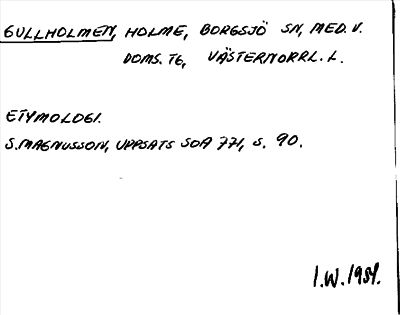 GULLHOLMEN, HOLME, BORGSJÖ SN, MED. V.
DOMS. TG, VÄSTERNORRL. L.
ETYMOLOGI.
S. MAGNUSSON, UPPSATS SOA 771, S. 90.
I.W. 1984.